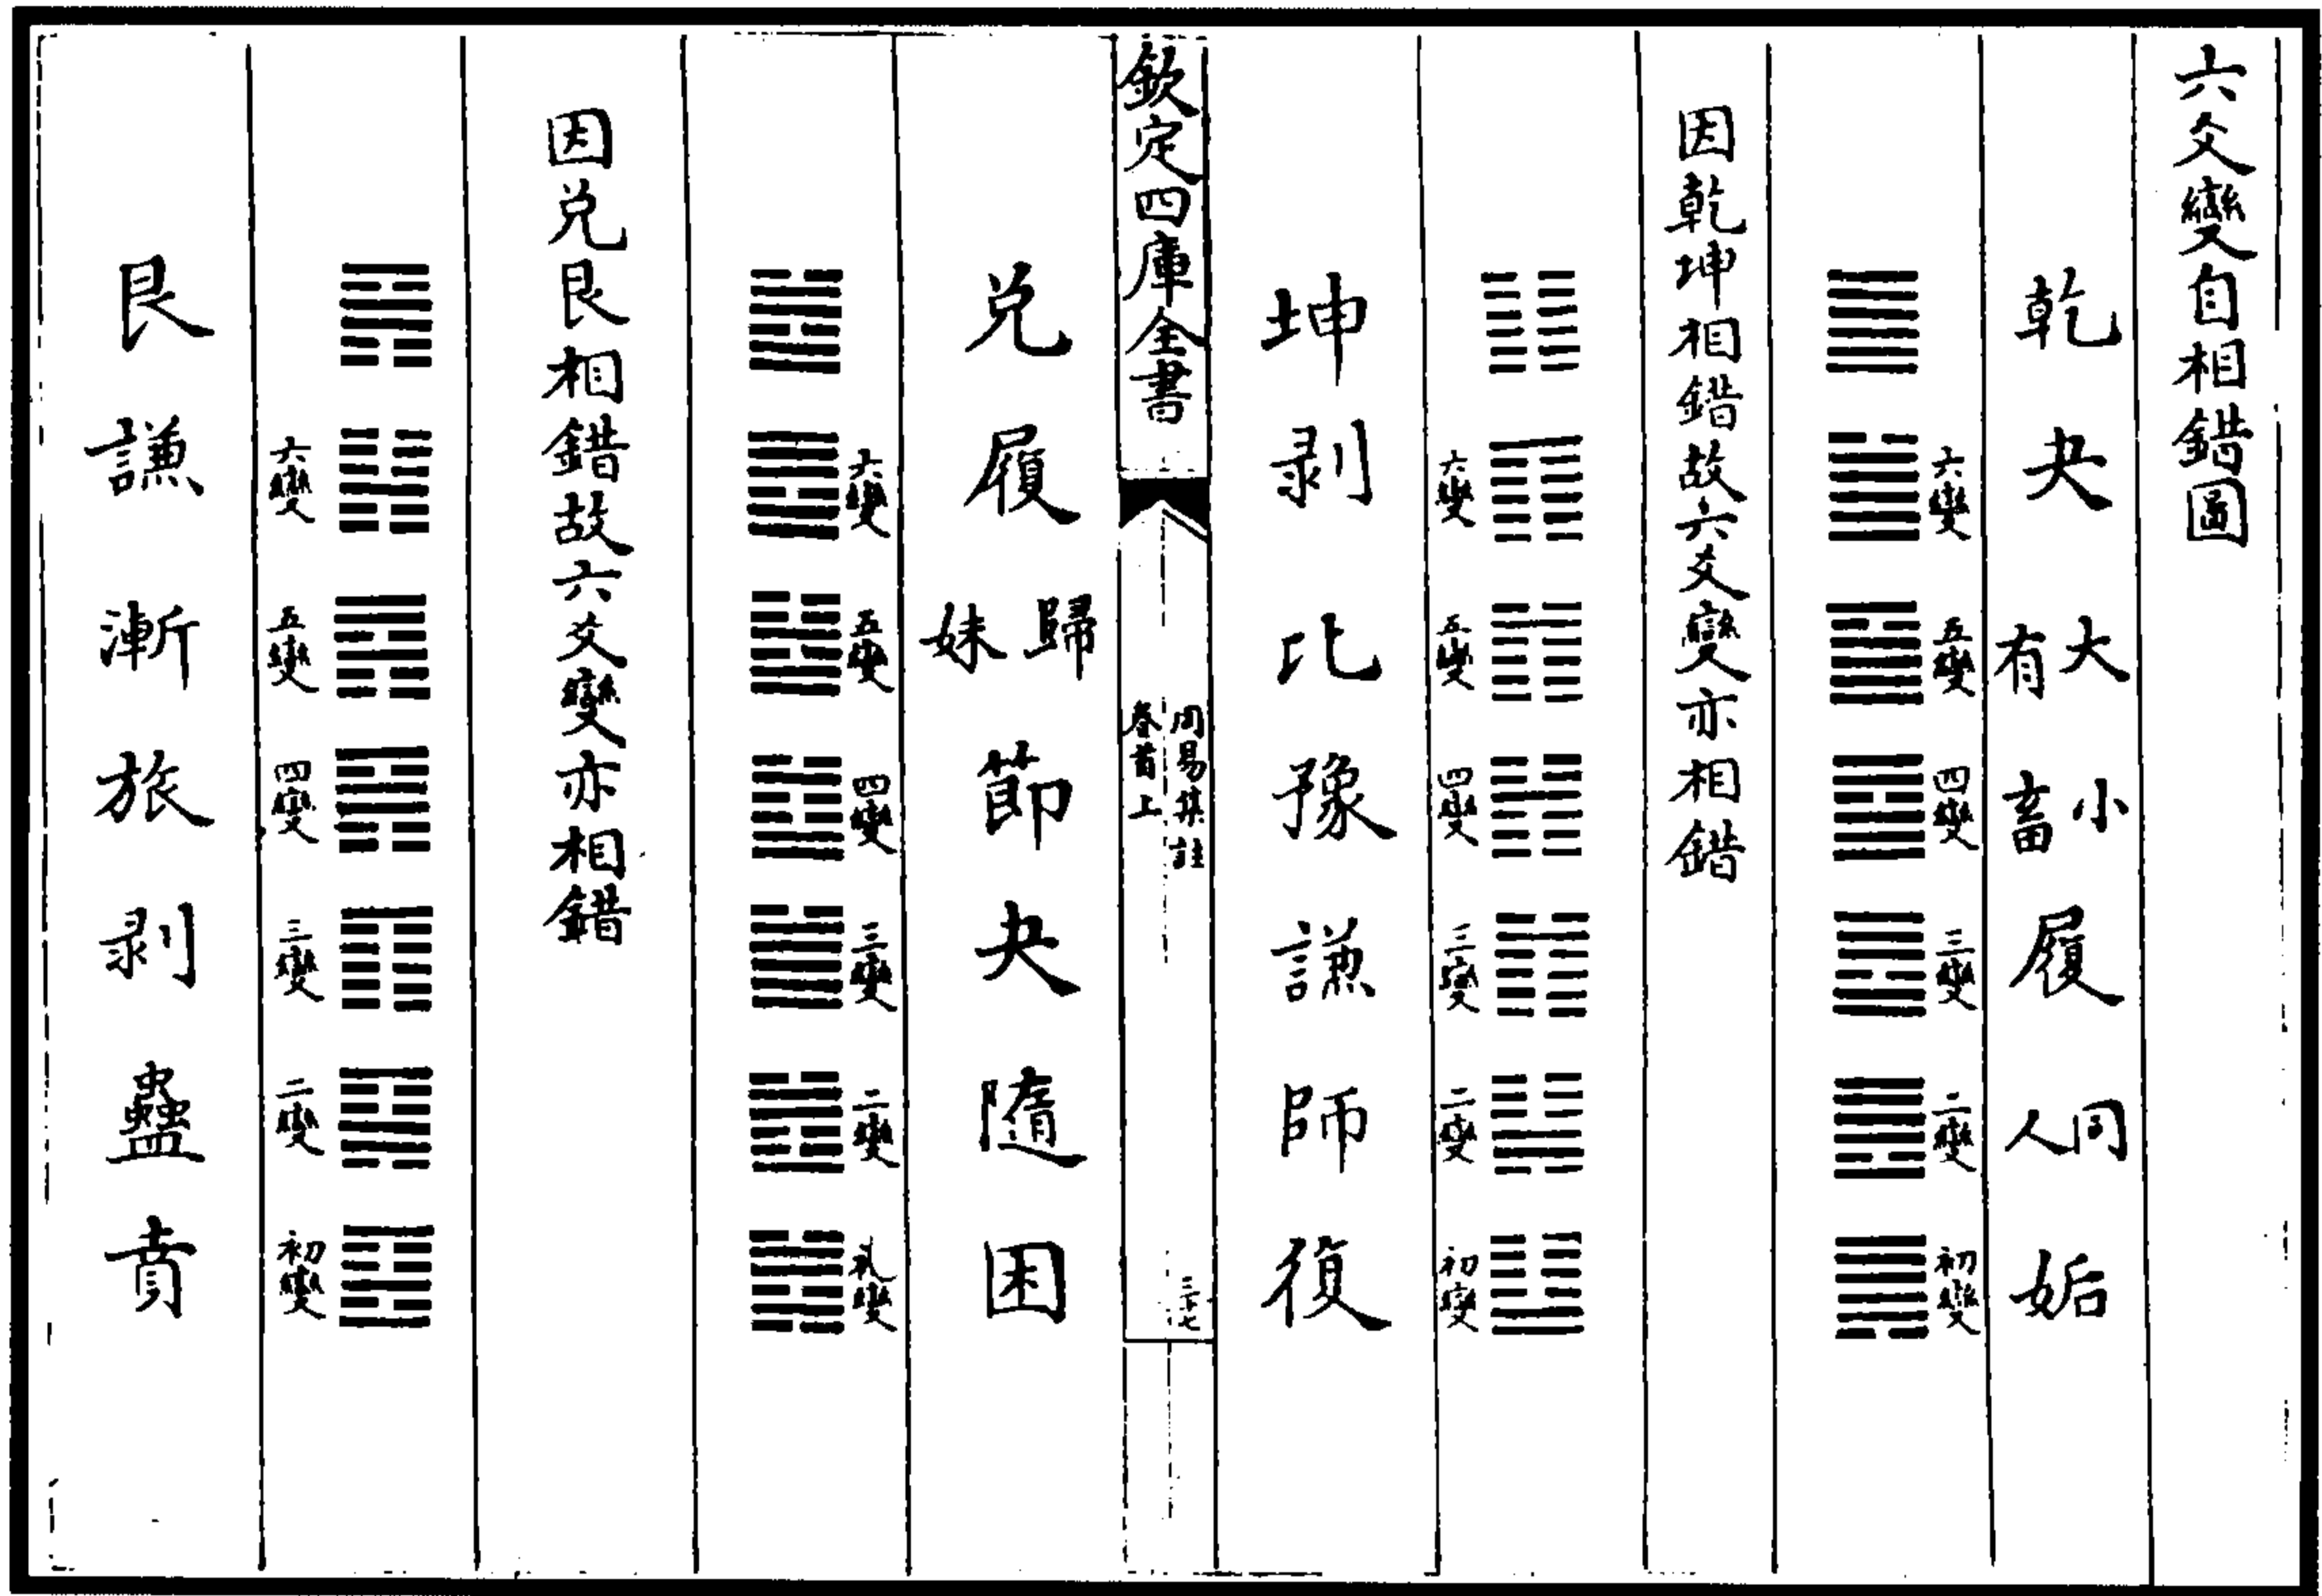 六爻變自相錯圖
乾 夬 大有 小畜 履 同人 姤
六變 五變 四變 三變 二變 初變
因乾坤相錯故六爻變亦相錯
六變 五變 四變 三變 二變 初變
坤 剥 比 豫 謙 師 復
欽定四庫全書
周易集註
卷首上
三十七
兑 履 歸妹 節 夬 隨 困
六變 五變 四變 三變 二變 初變
因兑艮相錯故六爻變亦相錯
六變 五變 四變 三變 二變 初變
艮 謙 漸 旅 剥 蠱 賁